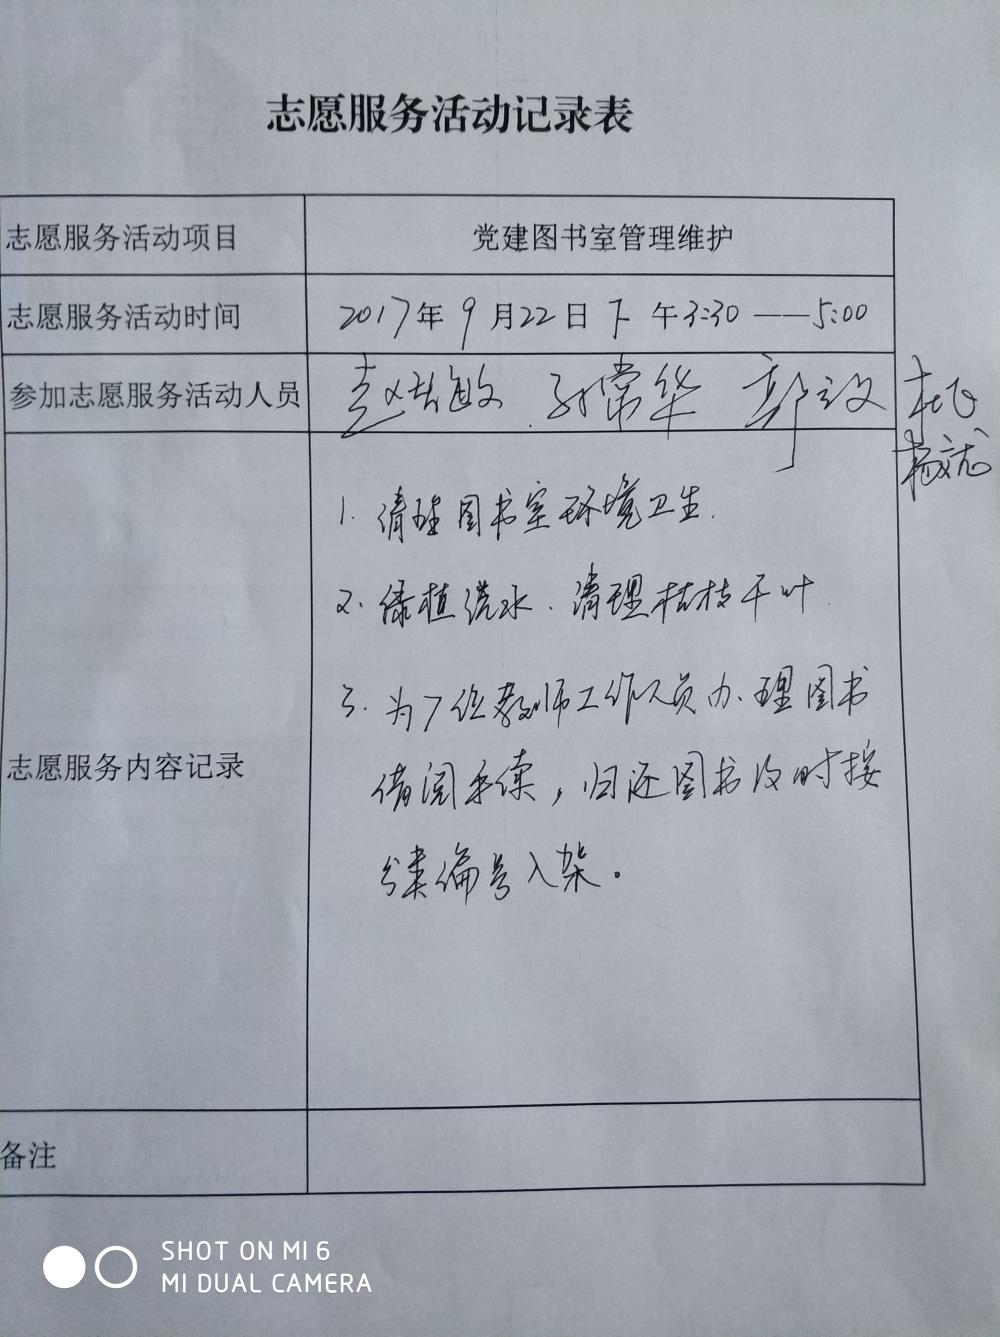 志愿服务活动记录表
志愿服务活动项目 党建图书室管理维护
志愿服务活动时间 2017年9月22日下午3:30——5:00
参加志愿服务活动人员 孙常华
杜飞
志愿服务内容记录
1. 清理图书室环境卫生.
2. 绿植浇水.清理枯枝干叶.
3. 为7位教师工作人员办理图书
借阅手续，归还图书及时按
分类编号入架。
备注
SHOT ON MI 6
MI DUAL CAMERA